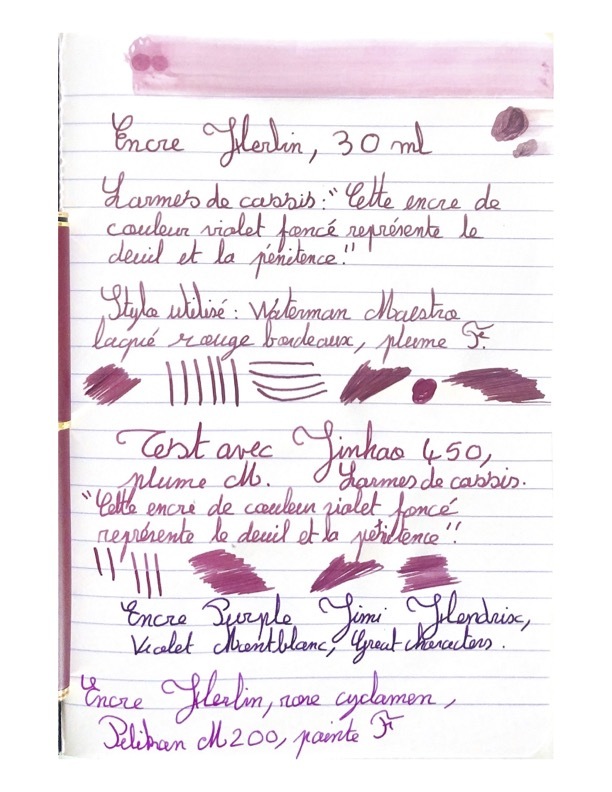 Encre Herbin, 30 ml
Larmes de cassis : "Cette encre de
couleur violet foncé représente le
deuil et la pénitence."
Stylo utilisé : Waterman Maestro
laqué rouge bordeaux, plume F.
Test avec Jinhao 450,
plume M. Larmes de cassis.
"Cette encre de couleur violet foncé
représente le deuil et la pénitence".
Encre Purple Jimi Hendrix,
Violet Montblanc, Great Characters.
Encre Herbin, rose cyclamen,
Pelikan M200, pointe F